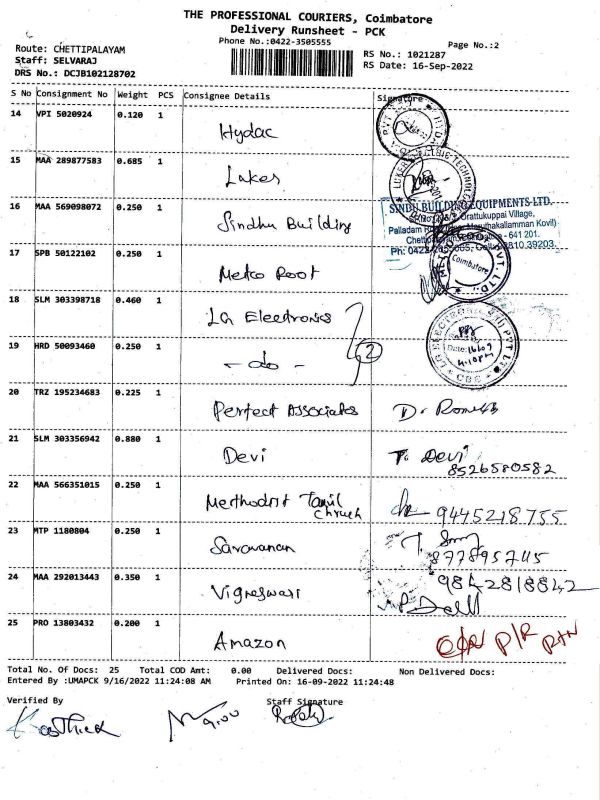 THE PROFESSIONAL COURIERS, Coimbatore
Delivery Runsheet - PCK
Phone No.:0422-3505555
Page No.:2
Route: CHETTIPALAYAM
Staff: SELVARAJ
DRS No.: DCJB102128702
RS No.: 1021287
RS Date: 16-Sep-2022
S No Consignment No Weight PCS Consignee Details Signature
14 VPI 5020924 0.120 1 Hydac
15 MAA 289877583 0.685 1 Lakes
16 MAA 569098072 0.250 1 Sindhu Building
SINDU BUILDING EQUIPMENTS LTD.
Orattukuppai Village,
Palladam
- 641 201.
17 SPB 50122102 0.250 1 Metco Root
Coimbatore
18 SLM 303398718 0.460 1 LG Electronics
19 HRD 50093460 0.250 1 - do - 2
20 TRZ 195234683 0.225 1 Perfect Associates
21 SLM 303356942 0.880 1 Devi T. Devi
8526580582
22 MAA 566351015 0.250 1 Methodist Tamil Church 9445218755
23 MTP 1180804 0.250 1 Saravanan
24 MAA 292013443 0.350 1 Vigneswari 9842818842
25 PRO 13803432 0.200 1 Amazon
Total No. Of Docs: 25 Total COD Amt: 0.00 Delivered Docs: Non Delivered Docs:
Entered By :UMAPCK 9/16/2022 11:24:08 AM Printed On: 16-09-2022 11:24:48
Verified By Staff Signature
Karthick